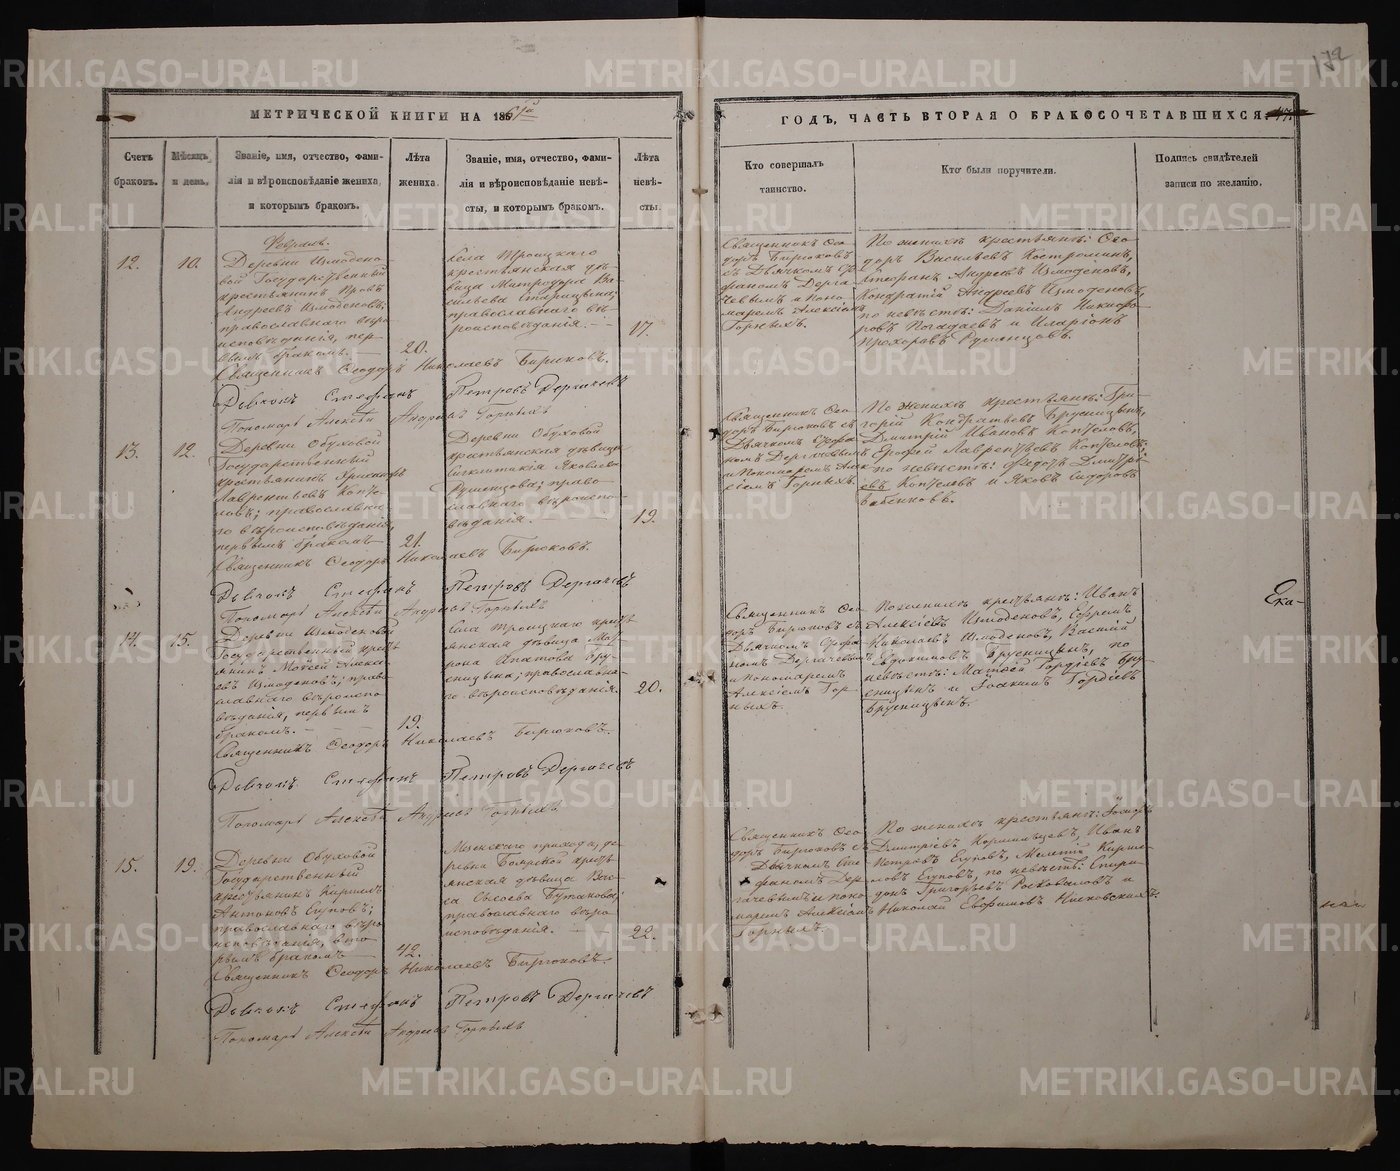 172
МЕТРИЧЕСКОЙ КНИГИ НА 1861й
ГОДЪ, ЧАСТЬ ВТОРАЯ О БРАКОСОЧЕТАВШИХСЯ.
Счетъ браковъ.
Мѣсяцъ и день.
Званіе, имя, отчество, фами-
лія и вѣроисповѣданіе жениха,
и которымъ бракомъ.
Лѣта
жениха.
Званіе, имя, отчество, фами-
лія и вѣроисповѣданіе невѣ-
сты, и которымъ бракомъ.
Лѣта
невѣ-
сты.
Кто совершалъ
таинство.
Кто были поручители.
Подпись свидѣтелей
записи по желанію.
Февраль.
12.
10.
Деревни Измодено-
вой Государственный
крестьянинъ
Андреевъ Измоденовъ,
православнаго вѣро-
исповѣданія, пер-
вымъ бракомъ.
20.
села Троицкаго
крестьянская дѣ-
вица Митродора Ва-
сильева Старицына;
православнаго вѣ-
роисповѣданія.
17.
Священникъ Ѳео-
доръ Бирюковъ
съ Дьячкомъ Сте-
фаномъ Дерга-
чевымъ и Поно-
маремъ Алексіемъ
Горныхъ.
По женихѣ крестьяне: Ѳео-
доръ Васильевъ Костроминъ,
Стефанъ Андреевъ Измоденовъ,
Кондратій Андреевъ Измоденовъ,
по невѣстѣ: Даніилъ Никифо-
ровъ Погадаевъ и Иларіонъ
Прохоровъ Румянцовъ.
Священникъ Ѳеодоръ Николаевъ Бирюковъ.
Дьячокъ Стефанъ Петровъ Дергачевъ
Пономарь Алексѣй Андреевъ Горныхъ
13.
12.
Деревни Обуховой
Государственный
крестьянинъ
Лаврентьевъ Копте-
ловъ; православна-
го вѣроисповѣданія,
первымъ бракомъ
21.
Деревни Обуховой
крестьянская дѣвица
Синклитикія Яковлева
Румянцова; право-
славнаго вѣроиспо-
вѣданія.
19.
Священникъ Ѳео-
доръ Бирюковъ съ
Дьячкомъ Стефа-
номъ Дергачевымъ
и Пономаремъ Алек-
сіемъ Горныхъ.
По женихѣ крестьяне: Гри-
горій Кондратьевъ Брусницынъ,
Дмитрій Ивановъ Коптеловъ,
Ерофей Лаврентьевъ Коптеловъ;
по невѣстѣ: Федотъ Дмитрі-
евъ Коптеловъ и Яковъ Сидоровъ
Бабенковъ.
Священникъ Ѳеодоръ Николаевъ Бирюковъ.
Дьячокъ Стефанъ Петровъ Дергачевъ
Пономарь Алексѣй Андреевъ Горныхъ
14.
15.
Деревни Измоденовой
Государственный крест-
янинъ Моѵсей Алексі-
евъ Измоденовъ; право-
славнаго вѣроиспо-
вѣданія, первымъ
бракомъ.
19.
Села Троицкаго крест-
янская дѣвица Мат-
рона Ипатова Бру-
сницына; православна-
го вѣроисповѣданія.
20.
Священникъ Ѳео-
доръ Бирюковъ съ
Дьячкомъ Стефа-
номъ Дергачевымъ
и Пономаремъ
Алексіемъ Гор-
ныхъ.
По женихѣ крестьяне: Иванъ
Алексіевъ Измоденовъ, Ефремъ
Николаевъ Измоденовъ, Василій
Евдокимовъ Брусницынъ, по
невѣстѣ: Матвей Гордіевъ Бру-
сницынъ и Іоакимъ Гордіевъ
Брусницынъ.
Ека-
Священникъ Ѳеодоръ Николаевъ Бирюковъ.
Дьячокъ Стефанъ Петровъ Дергачевъ
Пономарь Алексѣй Андреевъ Горныхъ
15.
19.
Деревни Обуховой
Государственный
крестьянинъ Кириллъ
Антоновъ Епуновъ;
православнаго вѣро-
исповѣданія, вто-
рымъ бракомъ
42.
прихода, де-
ревни Боярской крест-
янская дѣвица Ва-
са Сысоева Бутакова;
православнаго вѣро-
исповѣданія.
22.
Священникъ Ѳео-
доръ Бирюковъ съ
Дьячкомъ Сте-
фаномъ Дер-
гачевымъ и поно-
маремъ Алексіемъ
Горныхъ.
По женихѣ крестьяне:
Дмитріевъ Кормильцевъ, Иванъ
Петровъ Епуновъ, Мелетій Кирил-
ловъ Епуновъ, по невѣстѣ: Спири-
донъ Григорьевъ и
Николай Евфимовъ
Священникъ Ѳеодоръ Николаевъ Бирюковъ.
Дьячокъ Стефанъ Петровъ Дергачевъ
Пономарь Алексѣй Андреевъ Горныхъ
METRIKI.GASO-URAL.RU